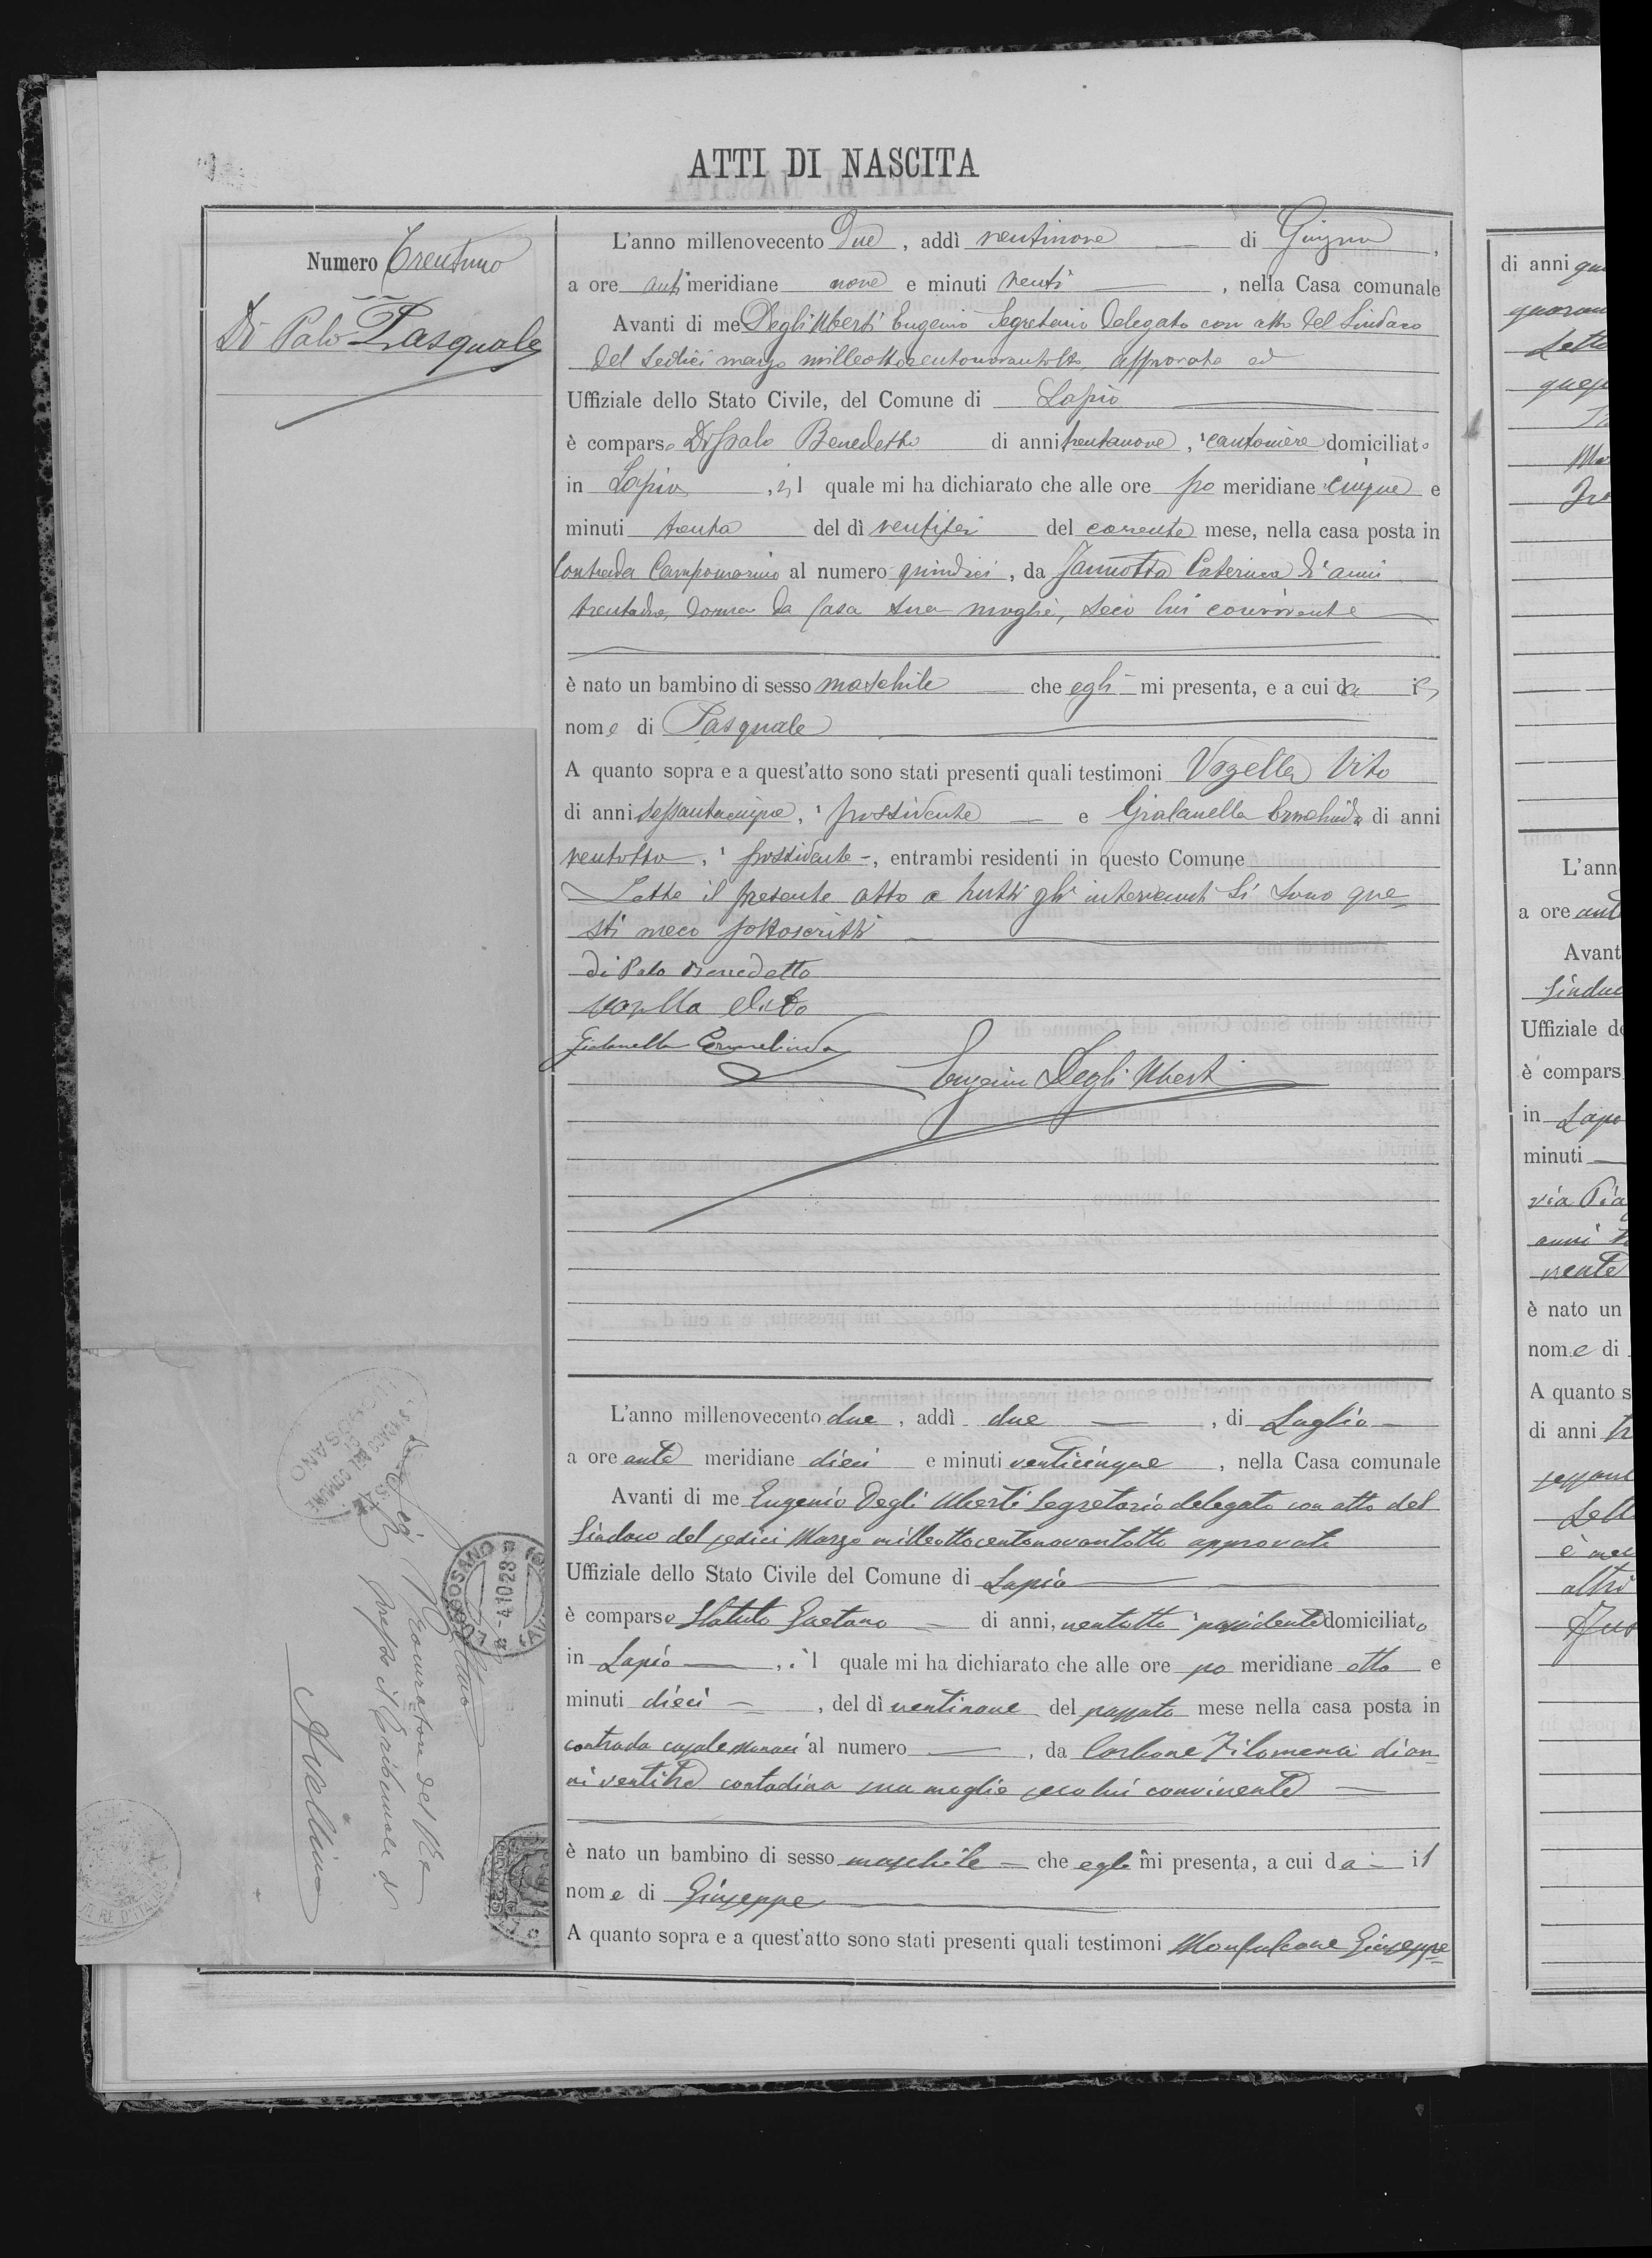 ATTI DI NASCITA
Numero Trentuno
Di Palo Pasquale
L'anno millenovecento Due, addì ventinove di Giugno,
a ore antimeridiane nove e minuti venti, nella Casa comunale
Avanti di me Degli Uberti Eugenio Segretario Delegato con atto del Sindaco
del sedici marzo milleottocentonovantotto, approvato ed
Uffiziale dello Stato Civile, del Comune di Lapio
è comparso Di Palo Benedetto di anni trentanove, cantoniere domiciliato
in Lapio, il quale mi ha dichiarato che alle ore po meridiane cinque e
minuti trenta del dì ventisei del corrente mese, nella casa posta in
Contrada Campomarino al numero quindici, da Jannotta Caterina di anni
trentadue, donna da casa sua moglie, seco lui convivente
è nato un bambino di sesso maschile che egli mi presenta, e a cui da il
nome di Pasquale
A quanto sopra e a quest'atto sono stati presenti quali testimoni Vozella Vito
di anni sessantacinque, possidente e Gialanella Ermelinda di anni
ventotto, possidente, entrambi residenti in questo Comune
Letto il presente atto a tutti gli intervenuti si sono que-
sti meco sottoscritti
Di Palo Benedetto
Vozella Vito
Gialanella Ermelinda
Eugenio Degli Uberti
L'anno millenovecento due, addì due, di Luglio
a ore ante meridiane dieci e minuti venticinque, nella Casa comunale
Avanti di me Eugenio Degli Uberti Segretario delegato con atto del
Sindaco del sedici Marzo milleottocentonovantotto approvato
Uffiziale dello Stato Civile del Comune di Lapio
è comparso Statuto Gaetano di anni, ventotto possidente domiciliato
in Lapio, il quale mi ha dichiarato che alle ore po meridiane otto e
minuti dieci, del dì ventinove del passato mese nella casa posta in
contrada casale Monaci al numero, da Carbone Filomena di an-
ni ventitre contadina sua moglie seco lui convivente
è nato un bambino di sesso maschile che egli mi presenta, a cui da il
nome di Giuseppe
A quanto sopra e a quest'atto sono stati presenti quali testimoni Monfalcone Giuseppe
Procuratore del Re
presso il Tribunale di
Avellino
LUOGOSANO
4.10.28
di anni
L'ann
a ore ant
Avant
Sindac
Uffiziale d
è compars
in Lapi
minuti
via
anni
è nato un
nome di
A quanto s
di anni